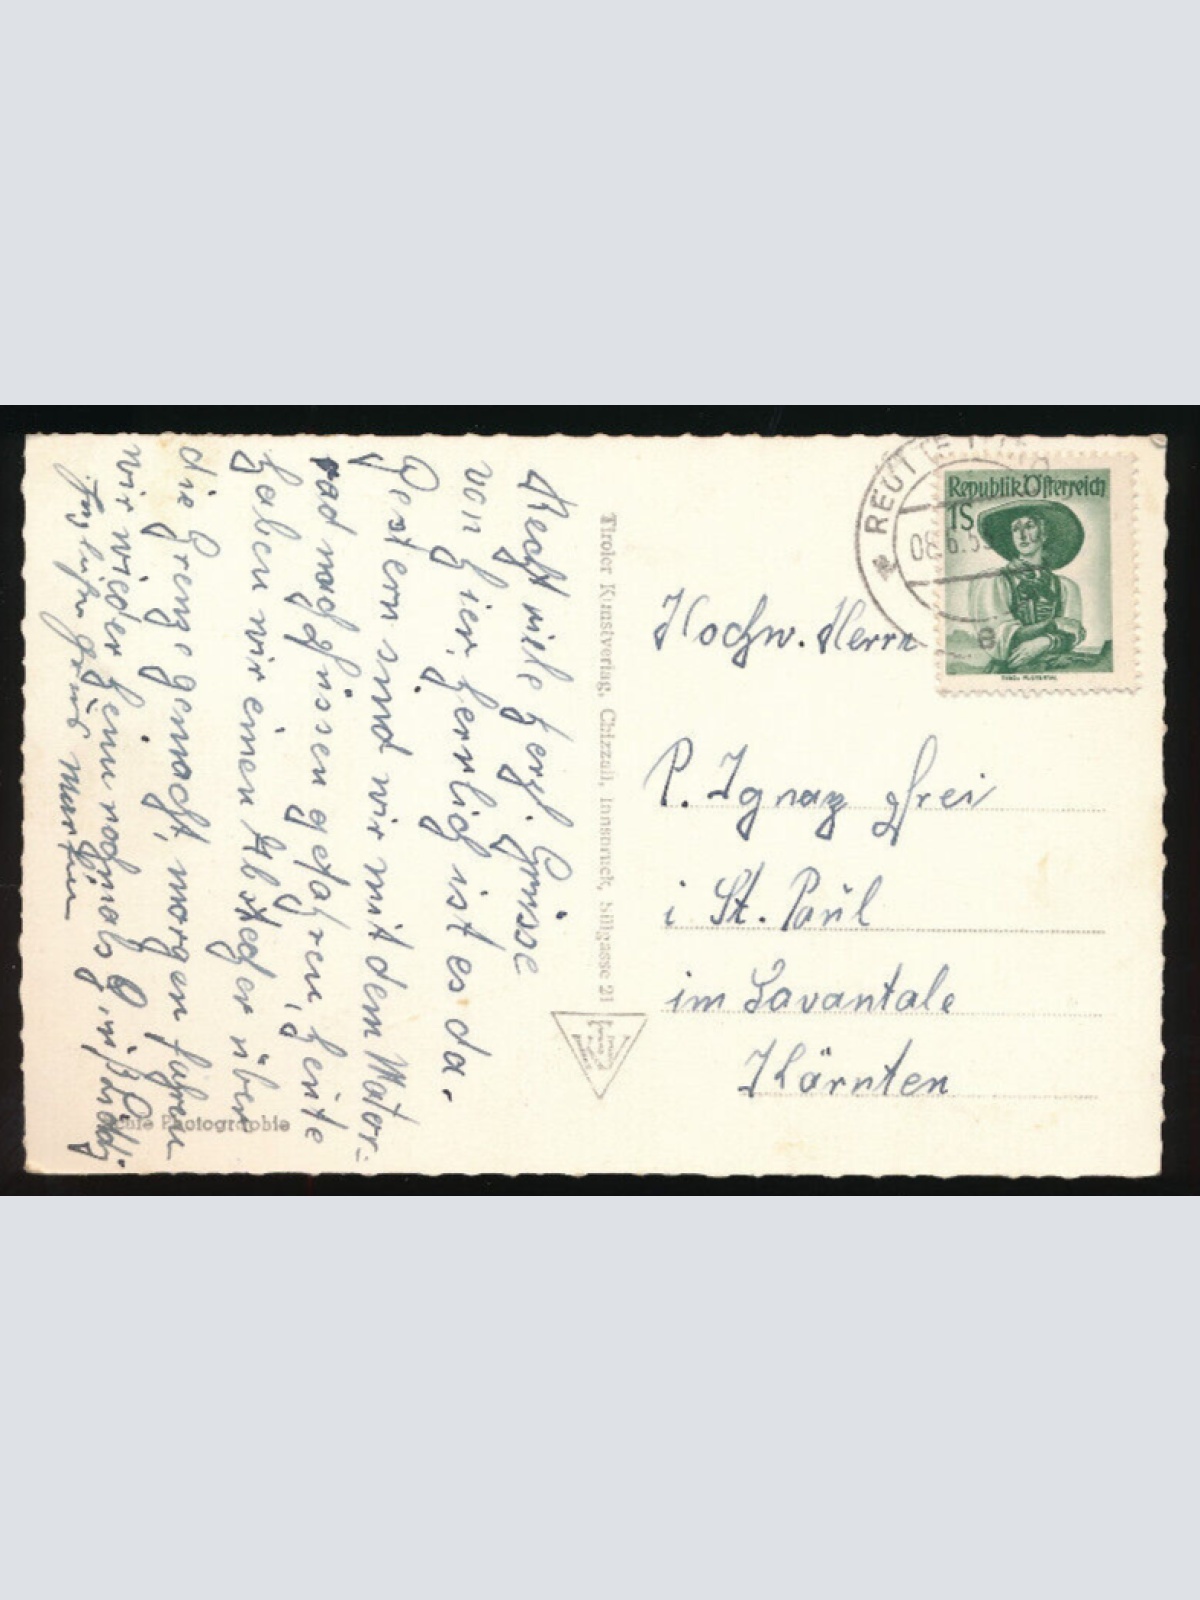 Recht viele herzl. Grüsse
von hier, herrlich ist es da.
Gestern sind wir mit dem Motor-
rad nach Füssen gefahren, heute
haben wir einen Abstecher über
die Grenze gemacht, morgen fahren
wir wieder heim nochmals
Grüß Martin
Tiroler Kunstverlag, Chizzali, Innsbruck, Sillgasse 21
Echte Photographie
REUTTE
08.6.5
e
Republik Österreich
1S
TIROL, PUSTERTAL
Hochw. Herrn
P. Ignaz Frei
i St. Paúl
im Lavantale
Kärnten